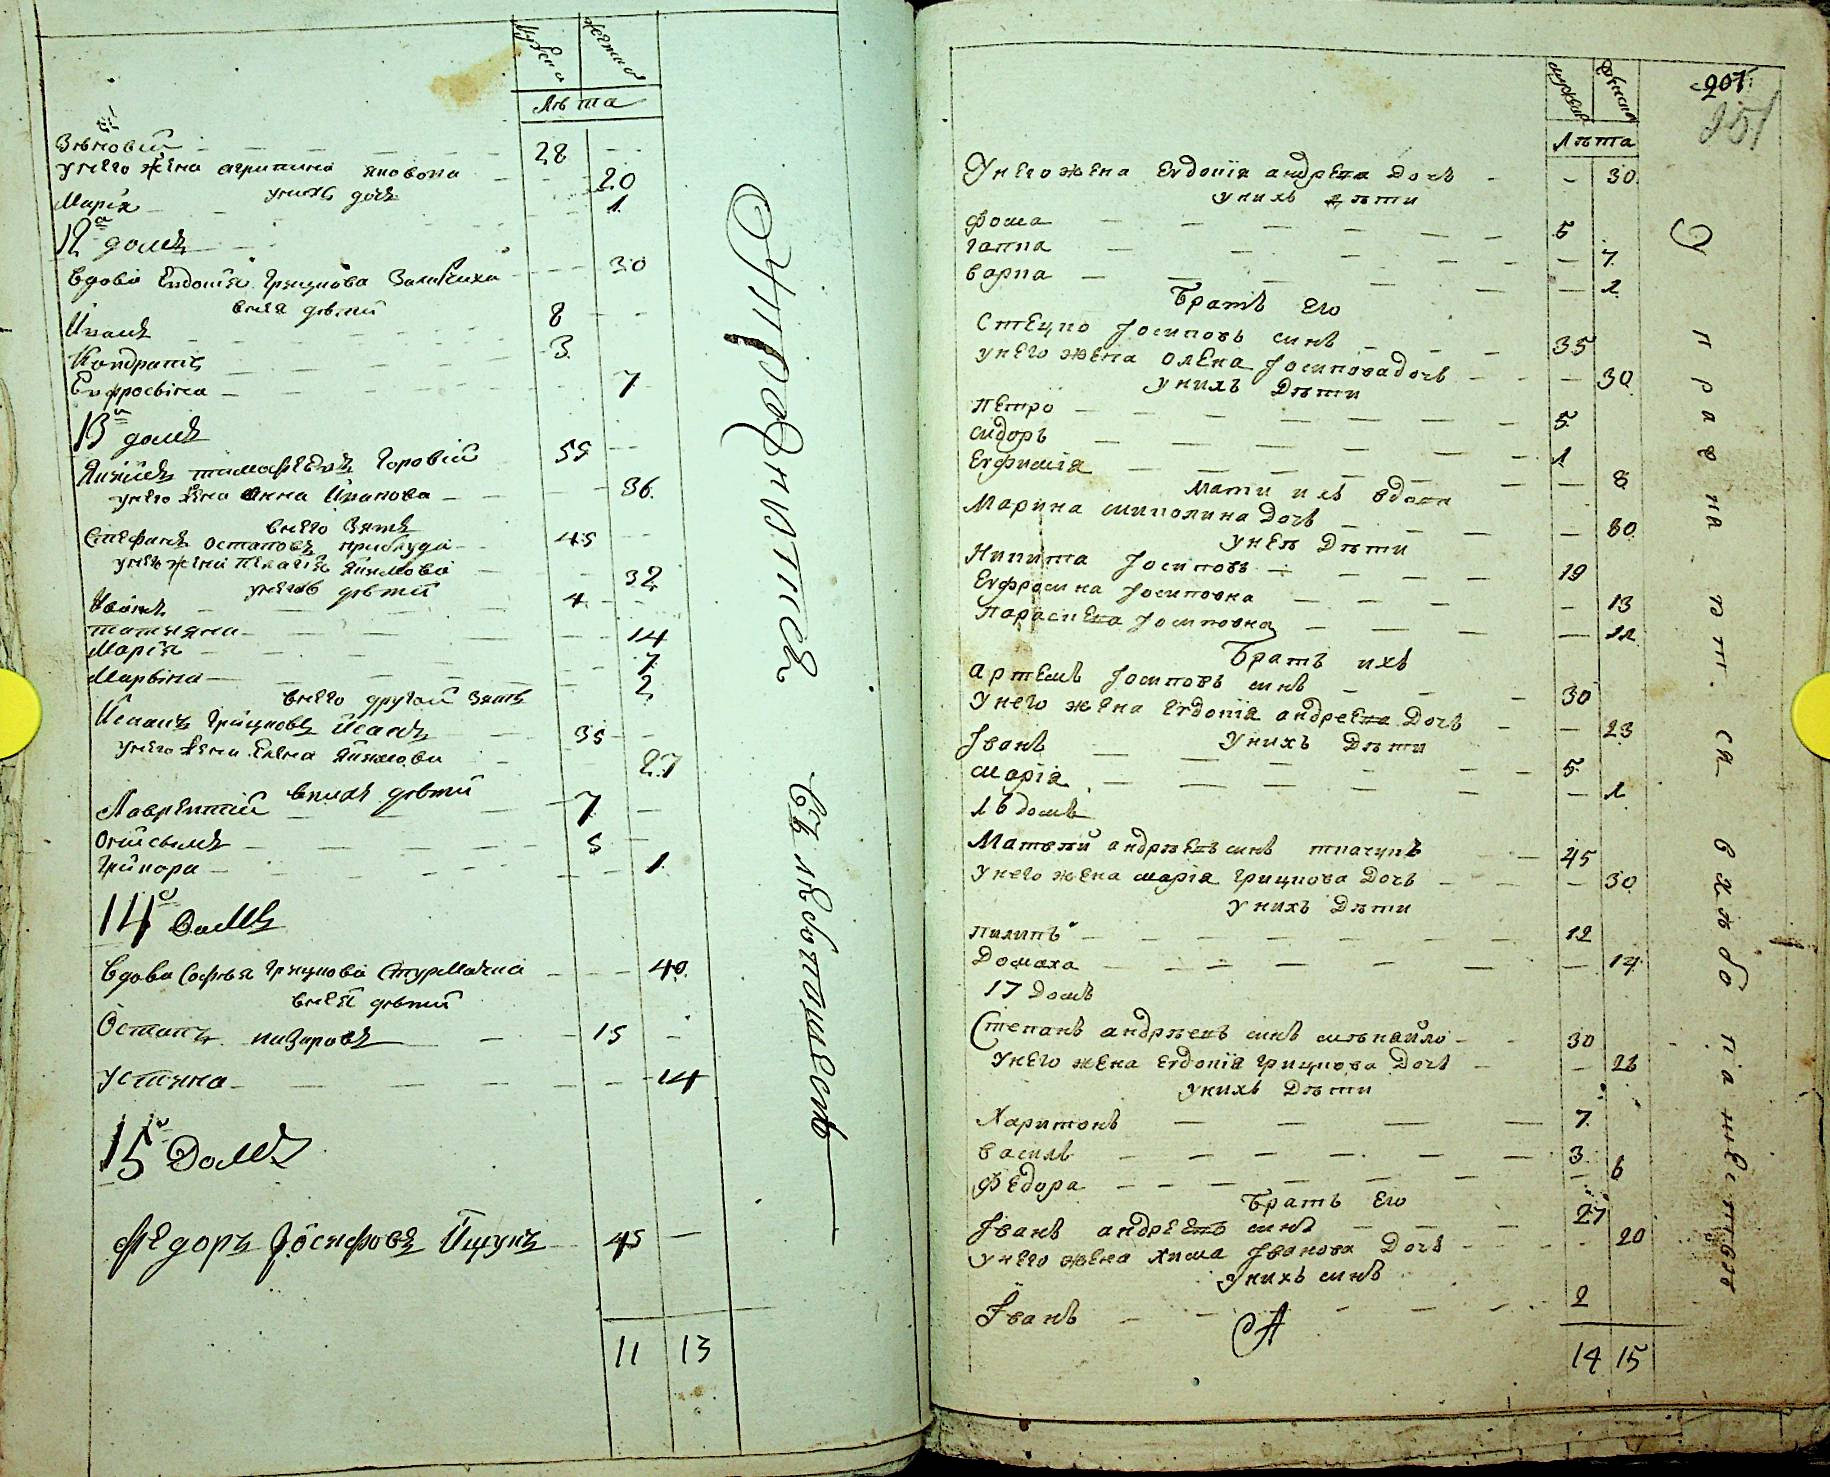 мужеска женска
лѣта
Зѣновій 28
у него жена агрипина яковова 20
у нихъ дочь
Марія 1
12 домъ
вдова Евдокія Грицкова 30
в нея дѣтей
Иванъ 8
Кондратъ 3
Євфросѣна 7
13 домъ
Якимъ тимофѣевъ Горовій 55
у него жена Анна Иванова 36
в него Зять
Стефанъ остаповъ приблуда 45
у него жена Пелагія Якимова 32
у нихъ дѣтей
4
татияна 14
Марія 7
Марвіна 2
в него другой Зять
Степанъ Грицковъ Исаенъ 35
у него жена Елена Якимова 27
в нихъ дѣтей
Лаврентій 7
Онисымъ 5
1
14 Домъ
вдова Софья Грицкова 40
в нея дѣтей
Остапъ назаровъ 15
устина 14
15 Домъ
Федоръ Іосифовъ Йщукъ 45
11 13
Оупражнится
съ хлѣбопашества
мужска женска
207
251
лѣта
У него жена Евдокія андреева дочь 30
у нихъ дѣти
фома 5
ганна 7
варка 1
Братъ его
Стецко Іосиповъ синъ 35
у него жена олена Іосипова дочь 30
у нихъ дѣти
петро 5
сидоръ 1
Евфимія 8
Мати ихъ вдова
Марина миколина дочь 80
у нея дѣти
Никита Іосиповъ 19
Евфросина Іосиповна 13
Параскева Іосиповна 11
Братъ ихъ
артемъ Іосиповъ синъ 30
у него жена Евдокія андреева дочь 23
у нихъ дѣти
Іванъ 5
марія 1
16 домъ
Матвѣй андрѣевъ синъ ткачукъ 45
у него жена марія грицкова дочь 30
у нихъ дѣти
пилипъ 12
Домаха 14
17 домъ
Степанъ андрѣевъ синъ михайло 30
у него жена Евдокія грицкова дочь 26
у нихъ дѣти
Харитонъ 7
василь 3
федора 6
Братъ его
Іванъ андреевъ синъ 27
у него жена хима Іванова дочь 20
у нихъ синъ
Іванъ 2
14 15
Упражнятся в хлѣбопашествѣ